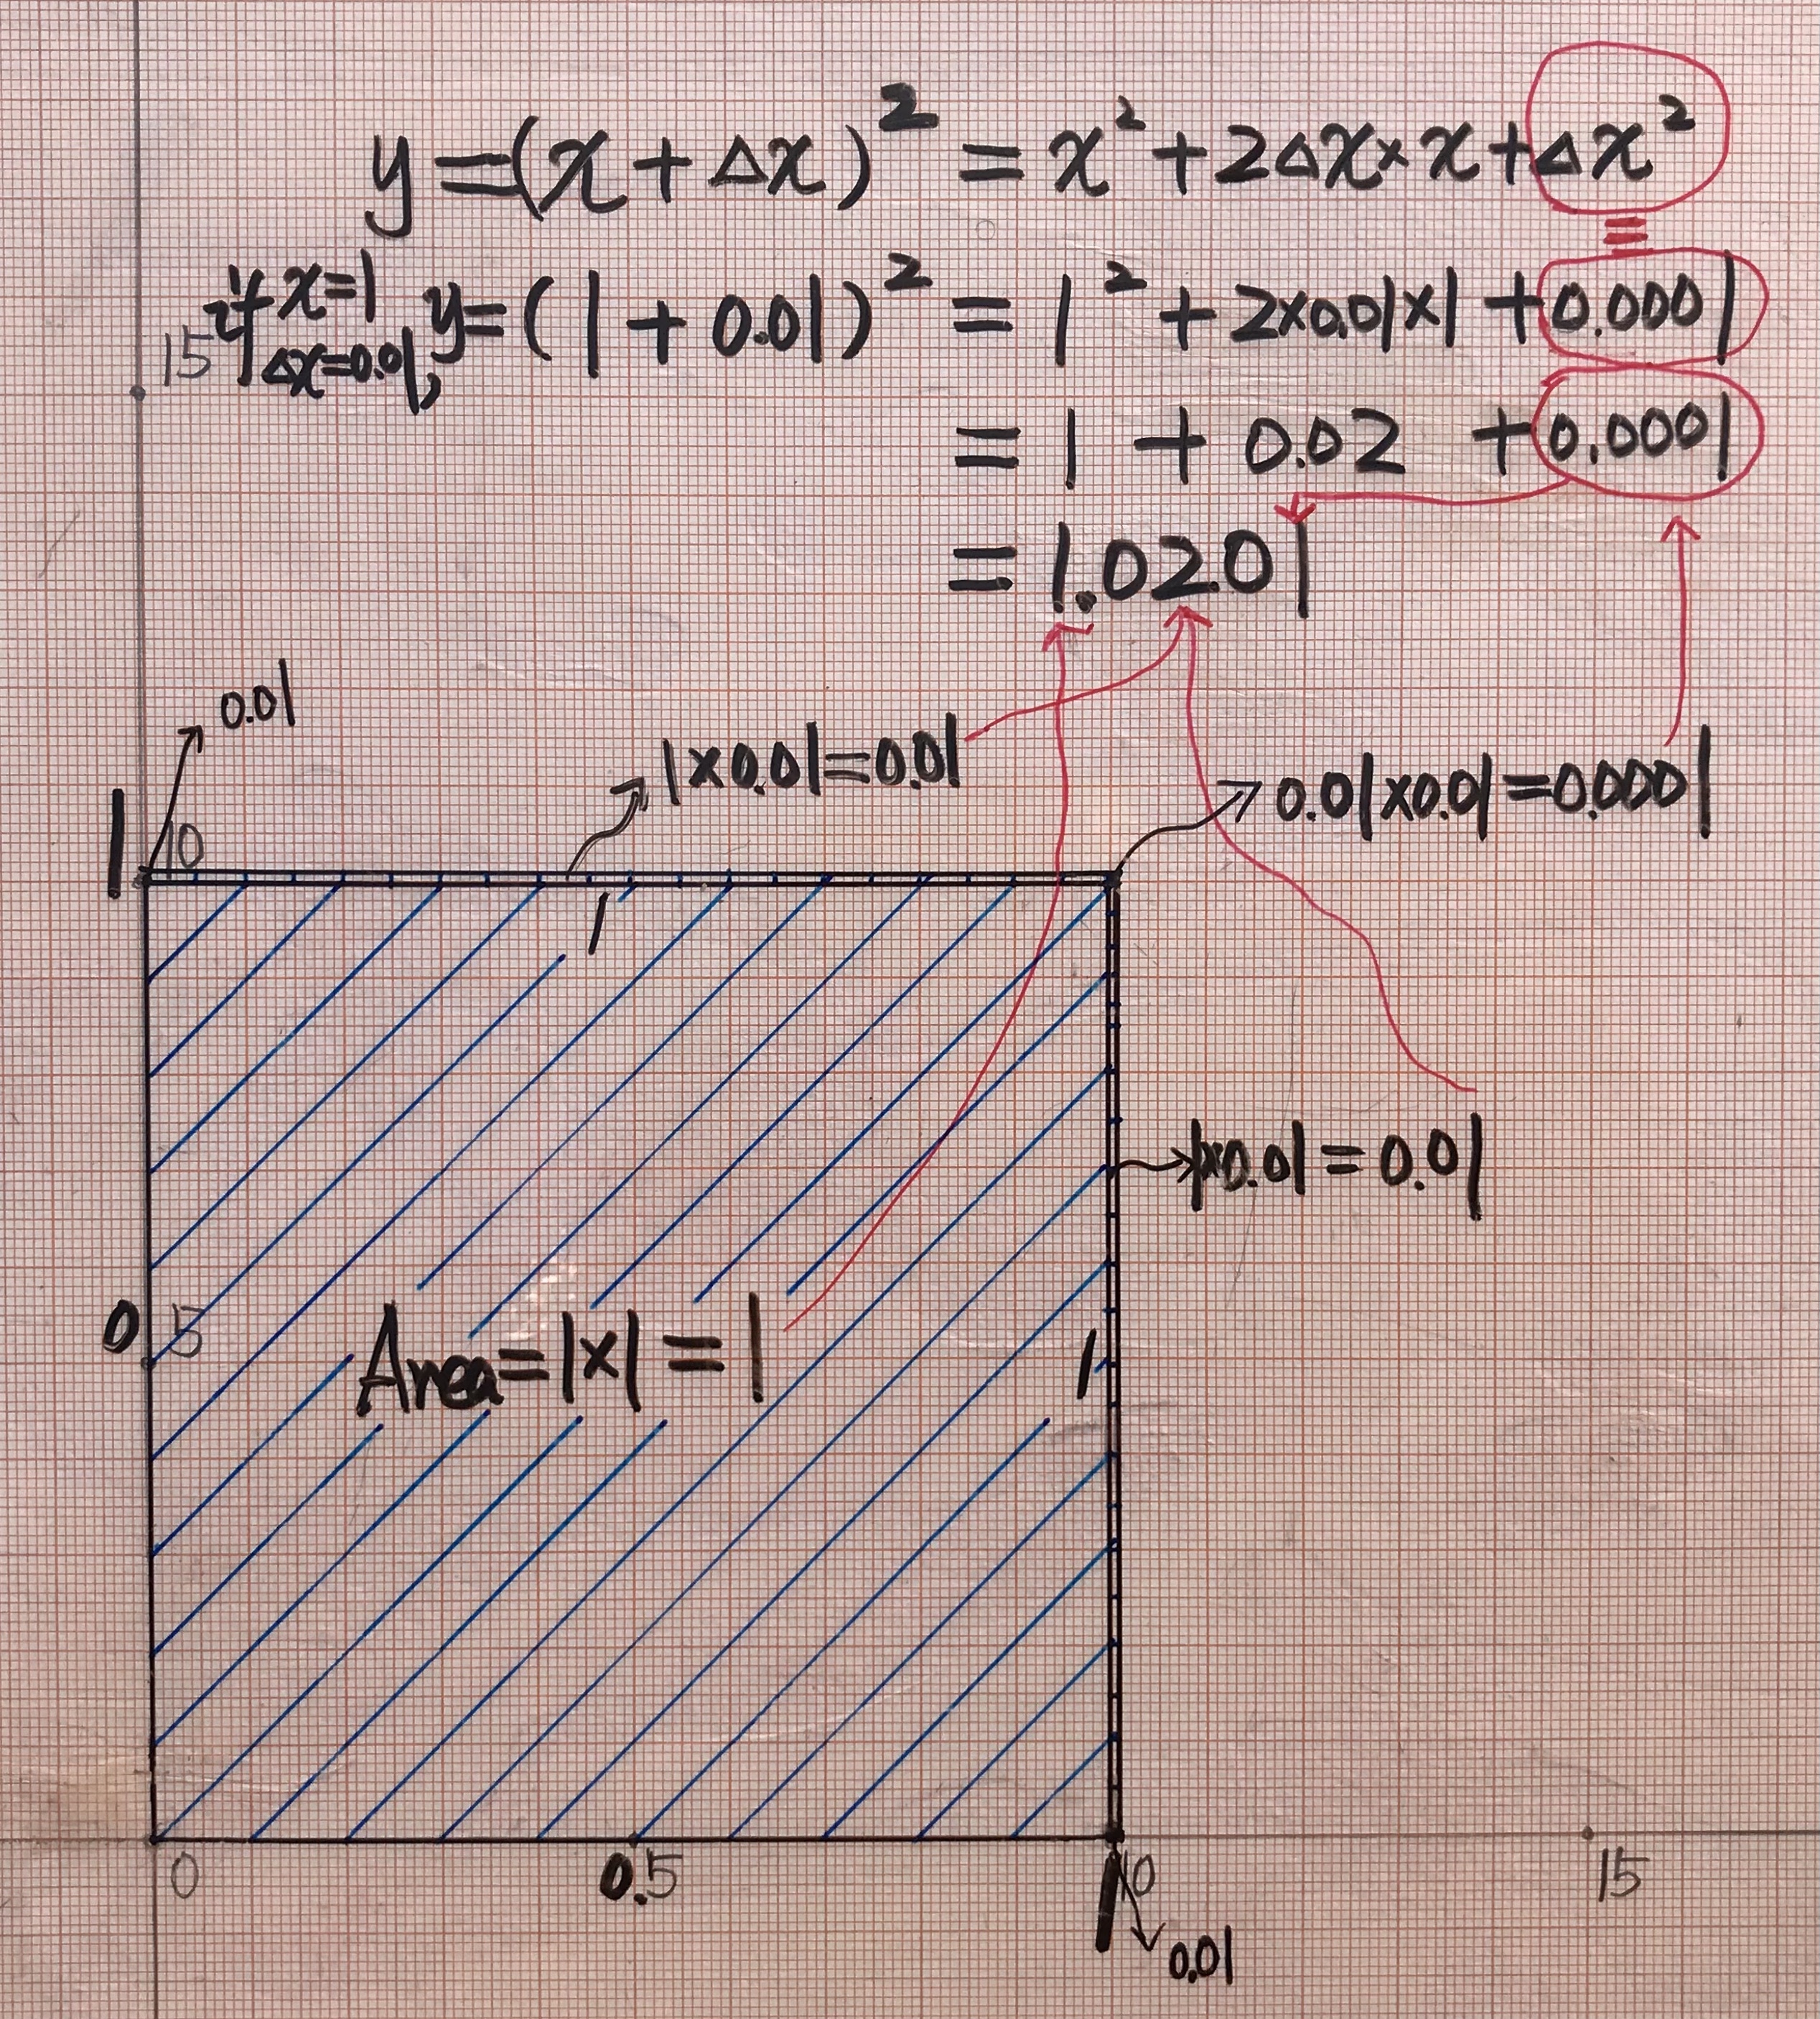 y=(x+Δx)² = x²+2Δx×x+Δx²
if x=1
Δx=0.01, y=(1+0.01)² = 1²+2×0.01×1+0.0001
15
= 1 + 0.02 +0.0001
= 1.0201
0.01
1×0.01=0.01
0.01×0.01=0.0001
1
10
1
1×0.01=0.01
0.5
Area=1×1=1
1
0
0.5
1
10
15
0.01